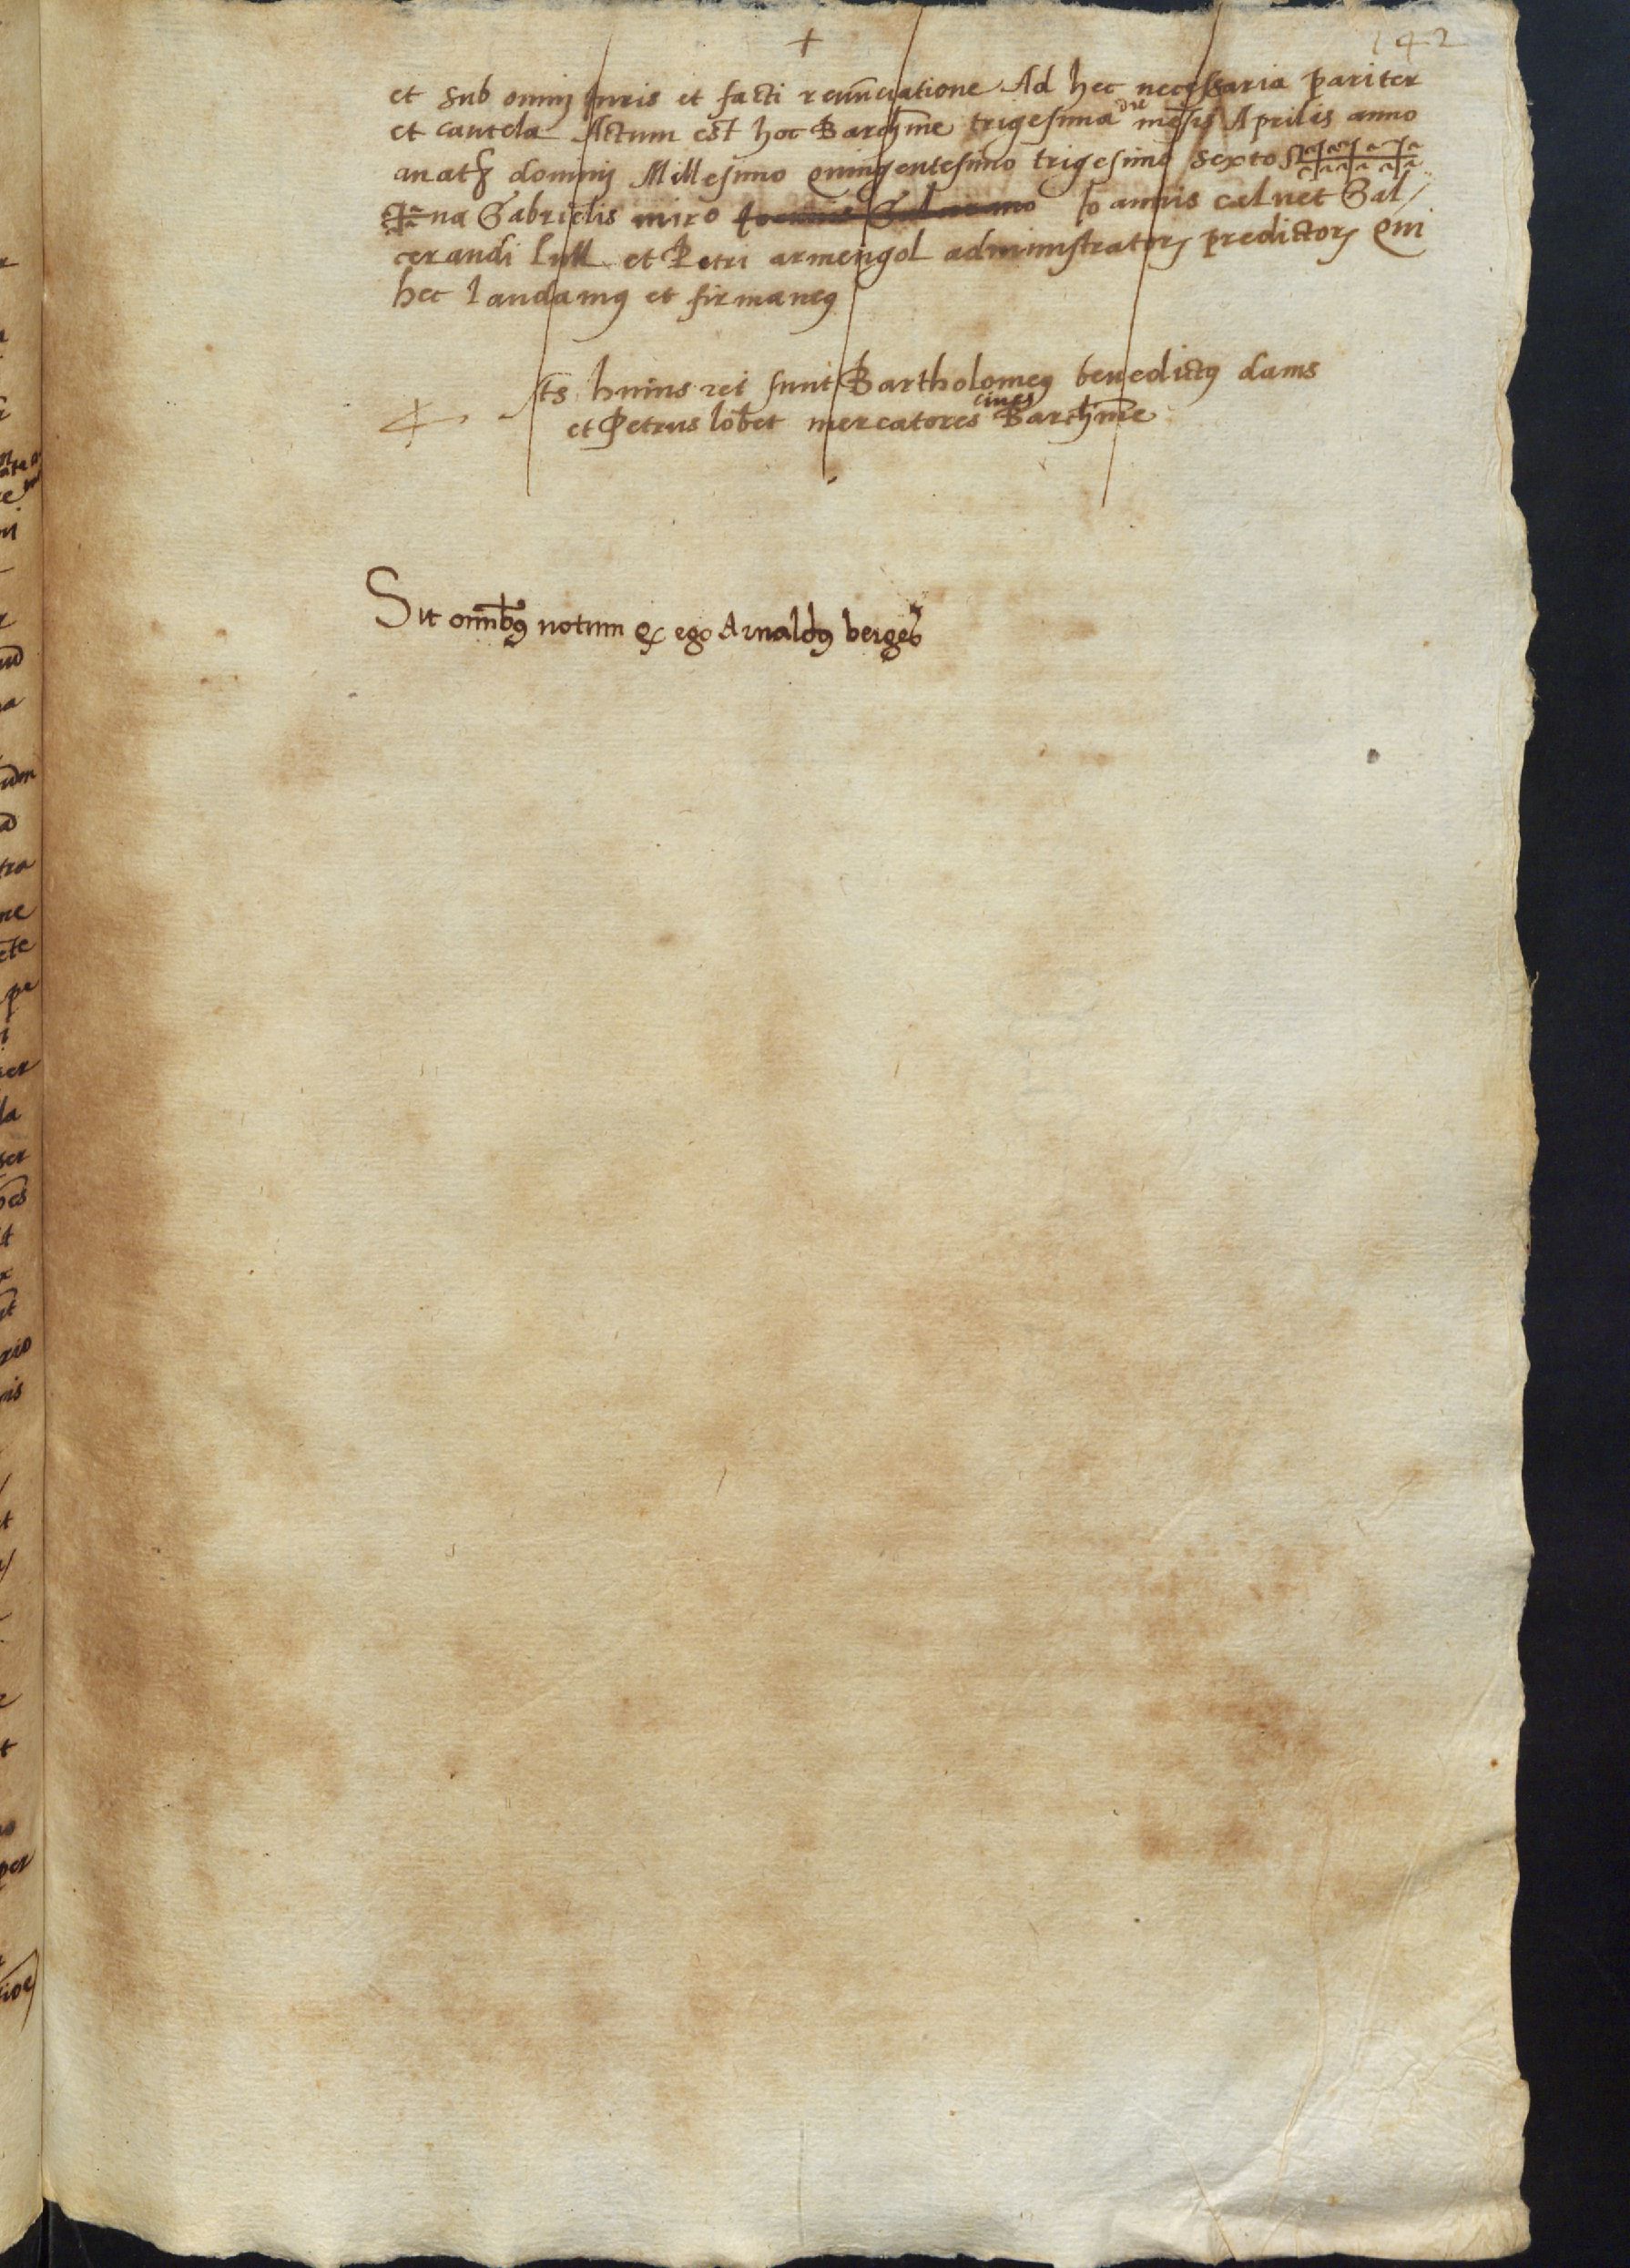 142
et sub omnj juris et facti renu̅ciatione Ad hec necessaria pariter
et cautela Actum est hoc Barch̅ne trigesima die me̅sis Aprilis anno
a nat domnij Millesimo quingentesimo trigesimo sexto
na Gabrielis miro Joannis calvet Gal/
cerandi lull et Petri armengol administrator predictor Qui
hec laudamus et firmamus
ts huius rei sunt Bartholomeus benedictus dams
et Petrus lobet mercatores cives Barch̅ne
Sit omnibus notum q ego Arnaldus